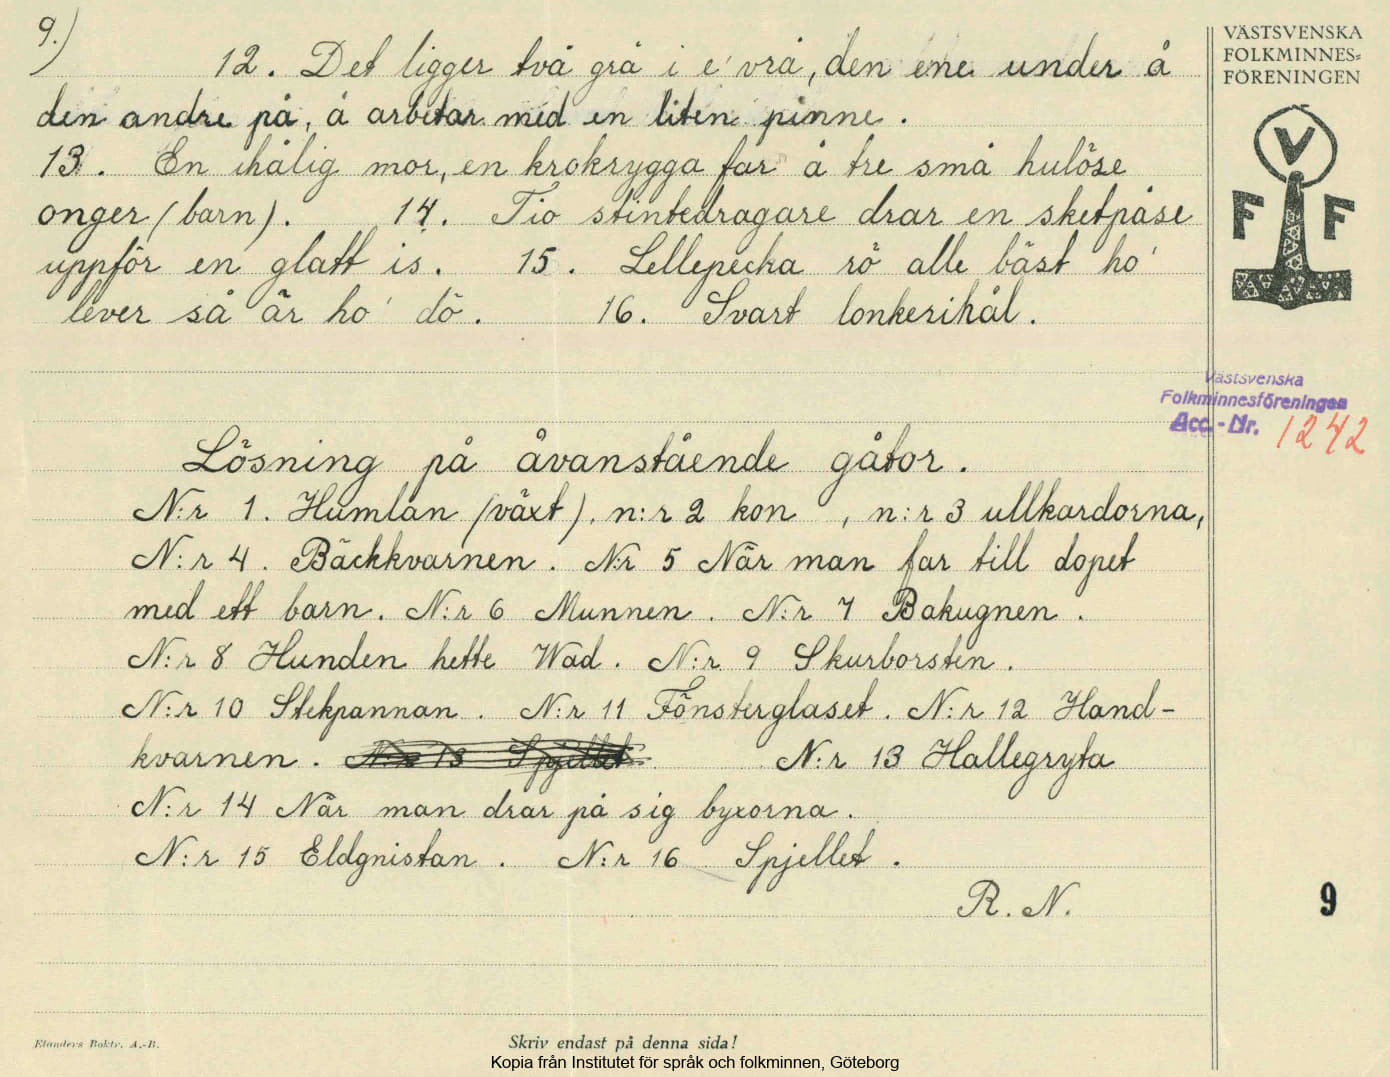 9.)
12. Det ligger två grå i e' vrå, den ene under å
den andre på, å arbetar med en liten pinne.
13. En ihålig mor, en krokrygga far å tre små hulöse
onger (barn). 14. Tio stintedragare drar en sketpåse
uppför en glatt is. 15. Lellepecka rö alle bäst ho'
lever så är ho' dö. 16. Svart lonkerihål.
Lösning på åvanstående gåtor.
N:r 1. Humlan (växt), n:r 2 kon, n:r 3 ullkardorna,
N:r 4. Bäckkvarnen. N:r 5 När man far till dopet
med ett barn. N:r 6 Munnen. N:r 7 Bakugnen.
N:r 8 Hunden hette Wad. N:r 9 Skurborsten.
N:r 10 Stekpannan. N:r 11 Fönsterglaset. N:r 12 Hand-
kvarnen. N:r 13 Spjellet N:r 13 Hallegryta
N:r 14 När man drar på sig byxorna.
N:r 15 Eldgnistan. N:r 16 Spjellet.
R. N.
VÄSTSVENSKA
FOLKMINNES=
FÖRENINGEN
V
F F
Västsvenska
Folkminnesföreningen
Acc.-Nr. 1242
9
Elanders Boktr. A.-B.
Skriv endast på denna sida!
Kopia från Institutet för språk och folkminnen, Göteborg